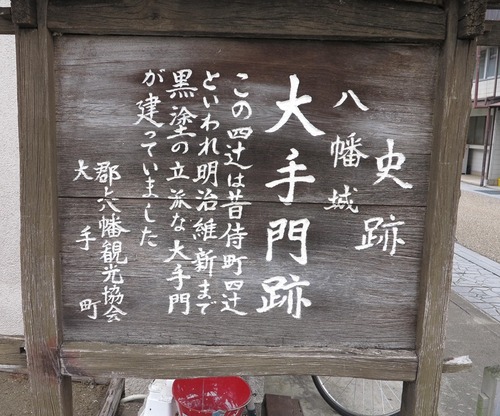 史跡
八幡城
大手門跡
この四辻は昔侍町四辻
といわれ明治維新まで
黒塗の立派な大手門
が建っていました
郡上八幡観光協会
大手町